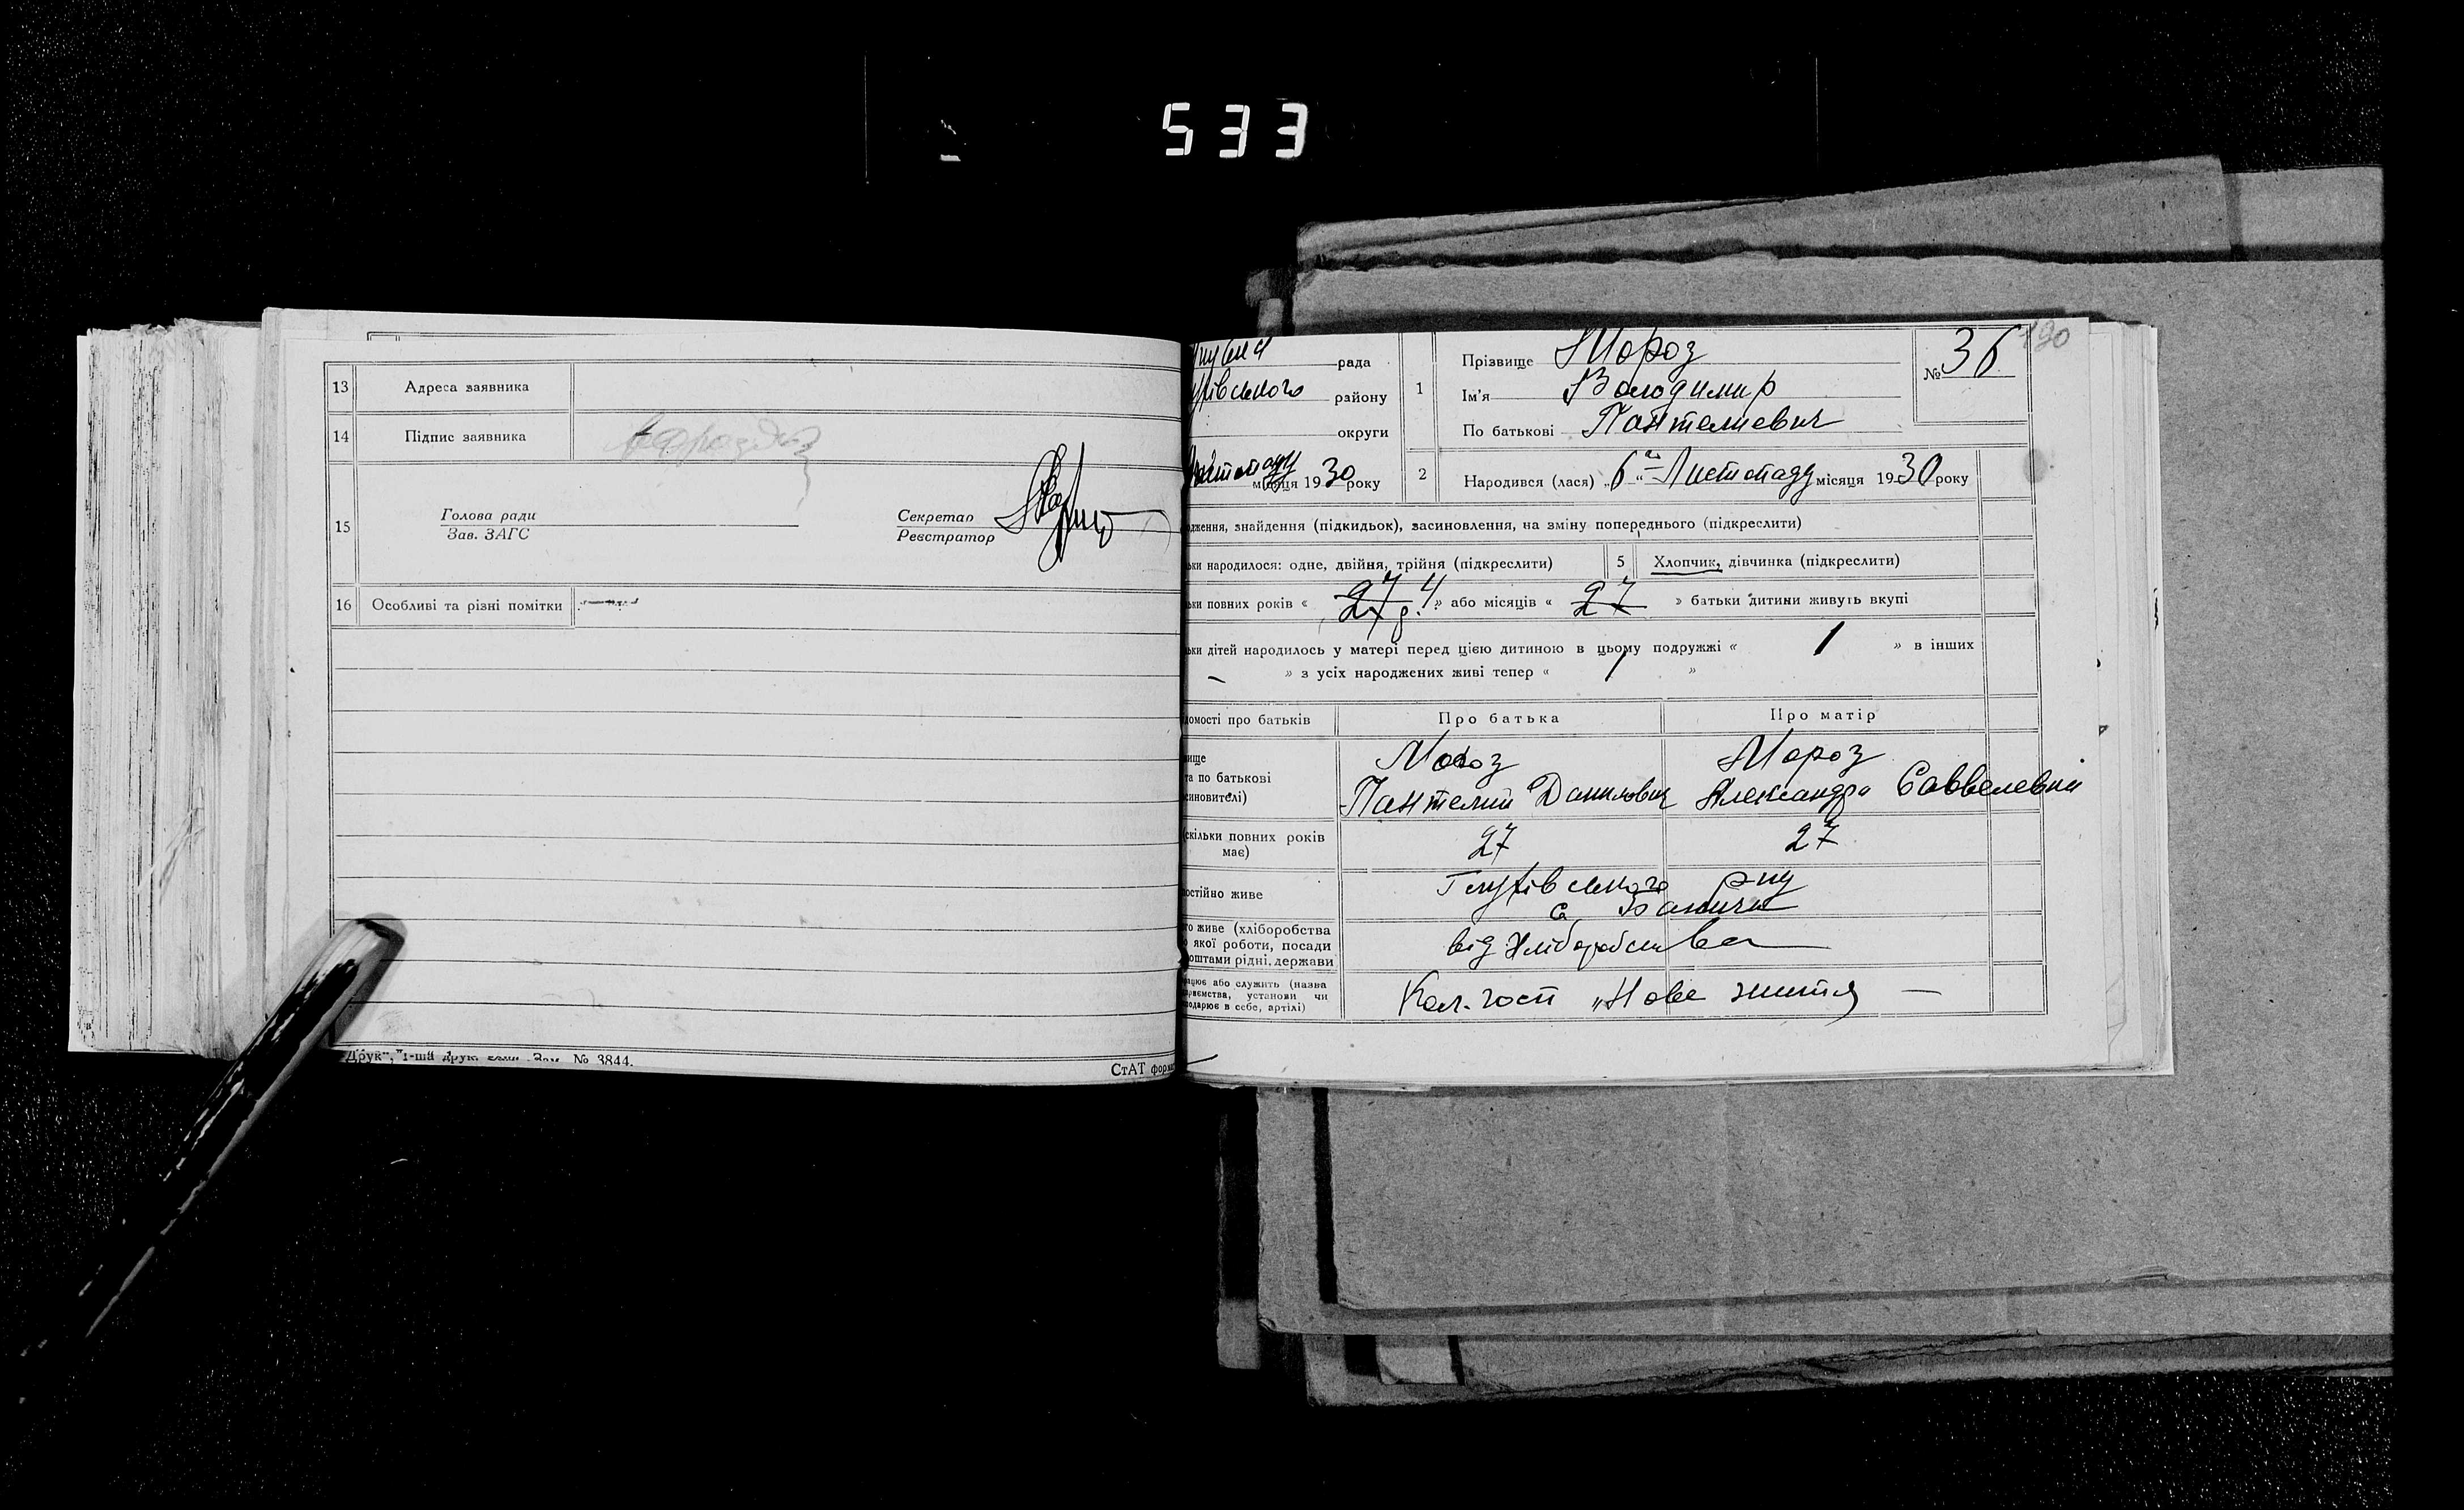 533
13 Адреса заявника
14 Підпис заявника
15 Голова ради
Зав. ЗАГС
Секретар
Реєстратор
16 Особливі та різні помітки
Друк", 1-ша друк. Зам. № 3844.
СтАТ форма
рада
районy
округи
Листопаду місяця 1930 року
1 Прізвище Мороз
Ім'я Володимир
По батькові Пантелиевич
№ 36
190
2 Народився (лася) „6" Листопаду місяця 1930 року
дження, знайдення (підкидьок), засиновлення, на зміну попереднього (підкреслити)
ьки народилося: одне, двійня, трійня (підкреслити) 5 Хлопчик, дівчинка (підкреслити)
ьки повних років « 27 4 » або місяців « 27 » батьки дитини живуть вкупі
ьки дітей народилось у матері перед цією дитиною в цьому подружжі « 1 » в інших
– » з усіх народжених живі тепер « 1 »
домості про батьків Про батька Про матір
вище
та по батькові
синовителі)
Мороз
Пантелий Данилович
Мороз
Александра Саввелевна
скільки повних років
має)
27 27
остійно живе
Глухівського р-ну
с. Баничи
го живе (хліборобства
о якої роботи, посади
оштами рідні, держави
від Хліборобства
рацює або служить (назва
приємства, установи чи
подарює в себе, артілі)
Кол. госп „Нове життя —